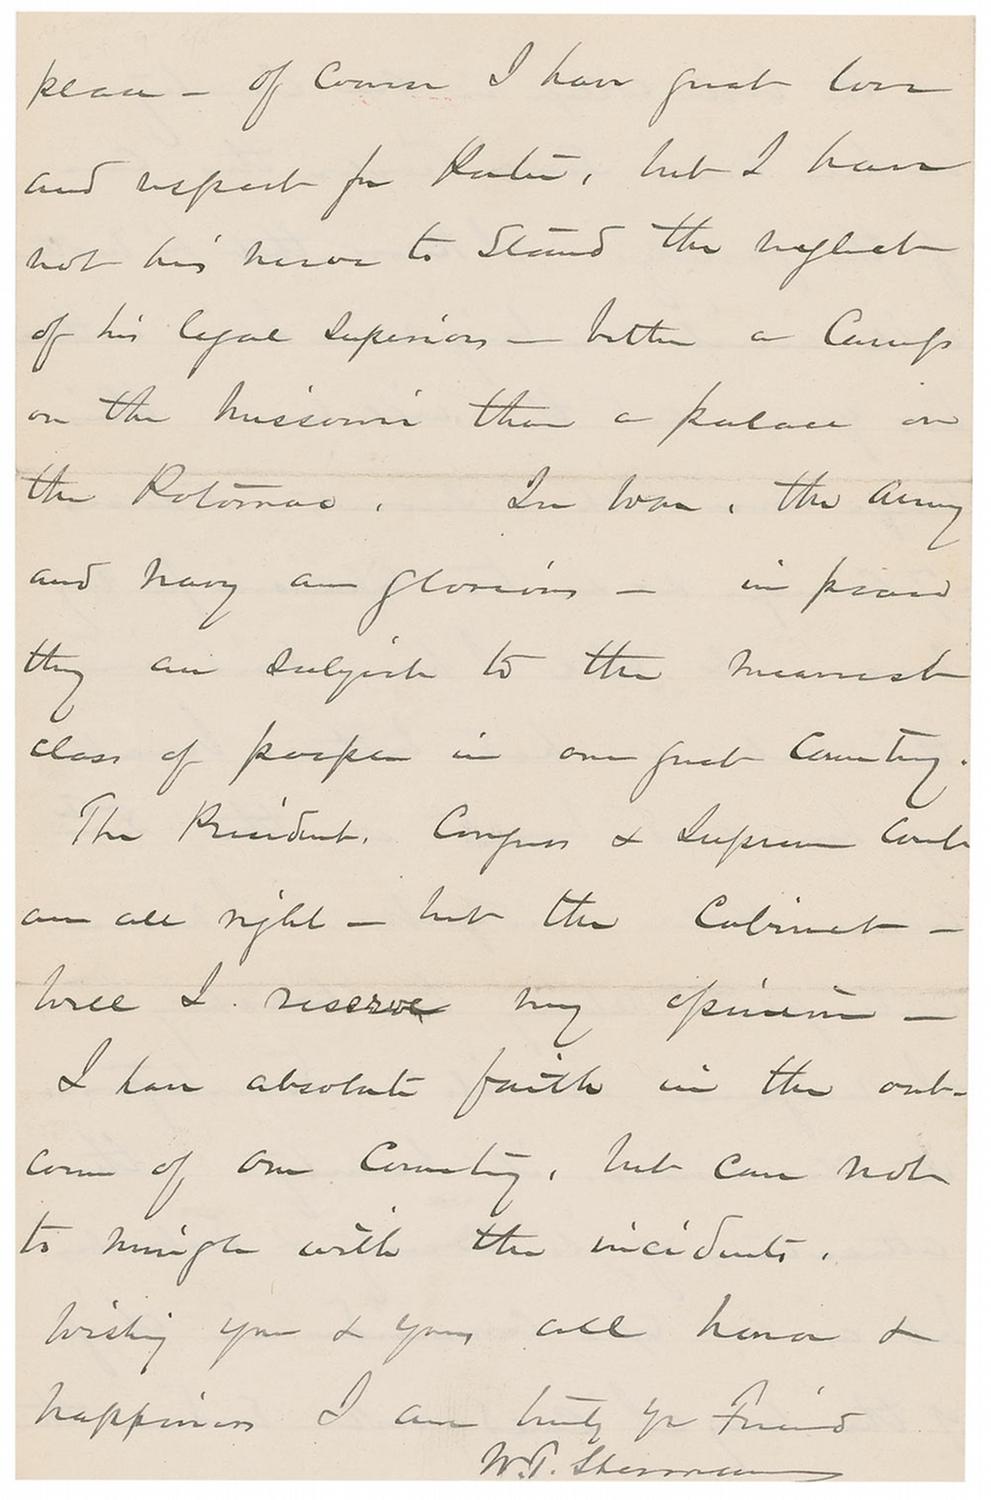 peace – of course I have great love
and respect for Porter, but I have
not his nerve to stand the neglect
of his legal superiors – better a Camp
on the Missouri than a palace on
the Potomac. In War, the Army
and Navy are glorious – in peace
they are subject to the meanest
class of people in our great Country.
The President, Congress & Supreme Court
are all right – but the Cabinet –
well I reserve my opinion –
I have absolute faith in the out-
come of our Country, but care not
to mingle with the incidents.
Wishing you & yours all honor &
happiness I am truly yr Friend
W.T. Sherman